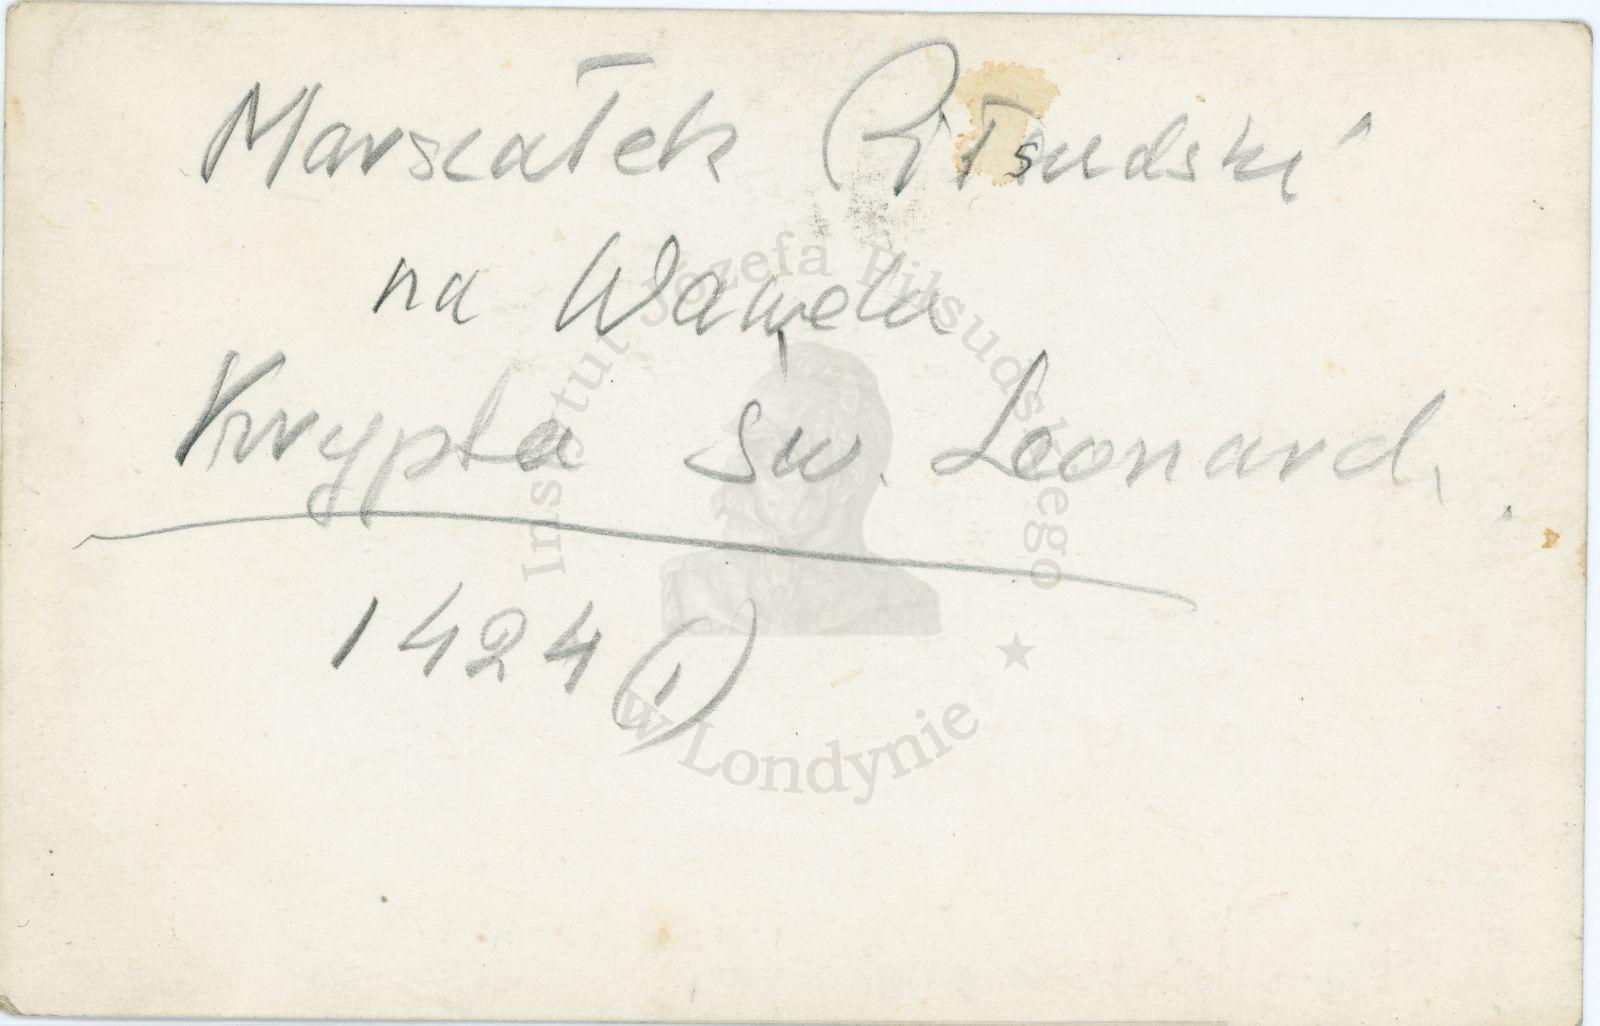 Marszałek Piłsudski
na Wawelu
Krypta św. Leonard.
1424 (1)
Instytut Józefa Piłsudskiego
w Londynie